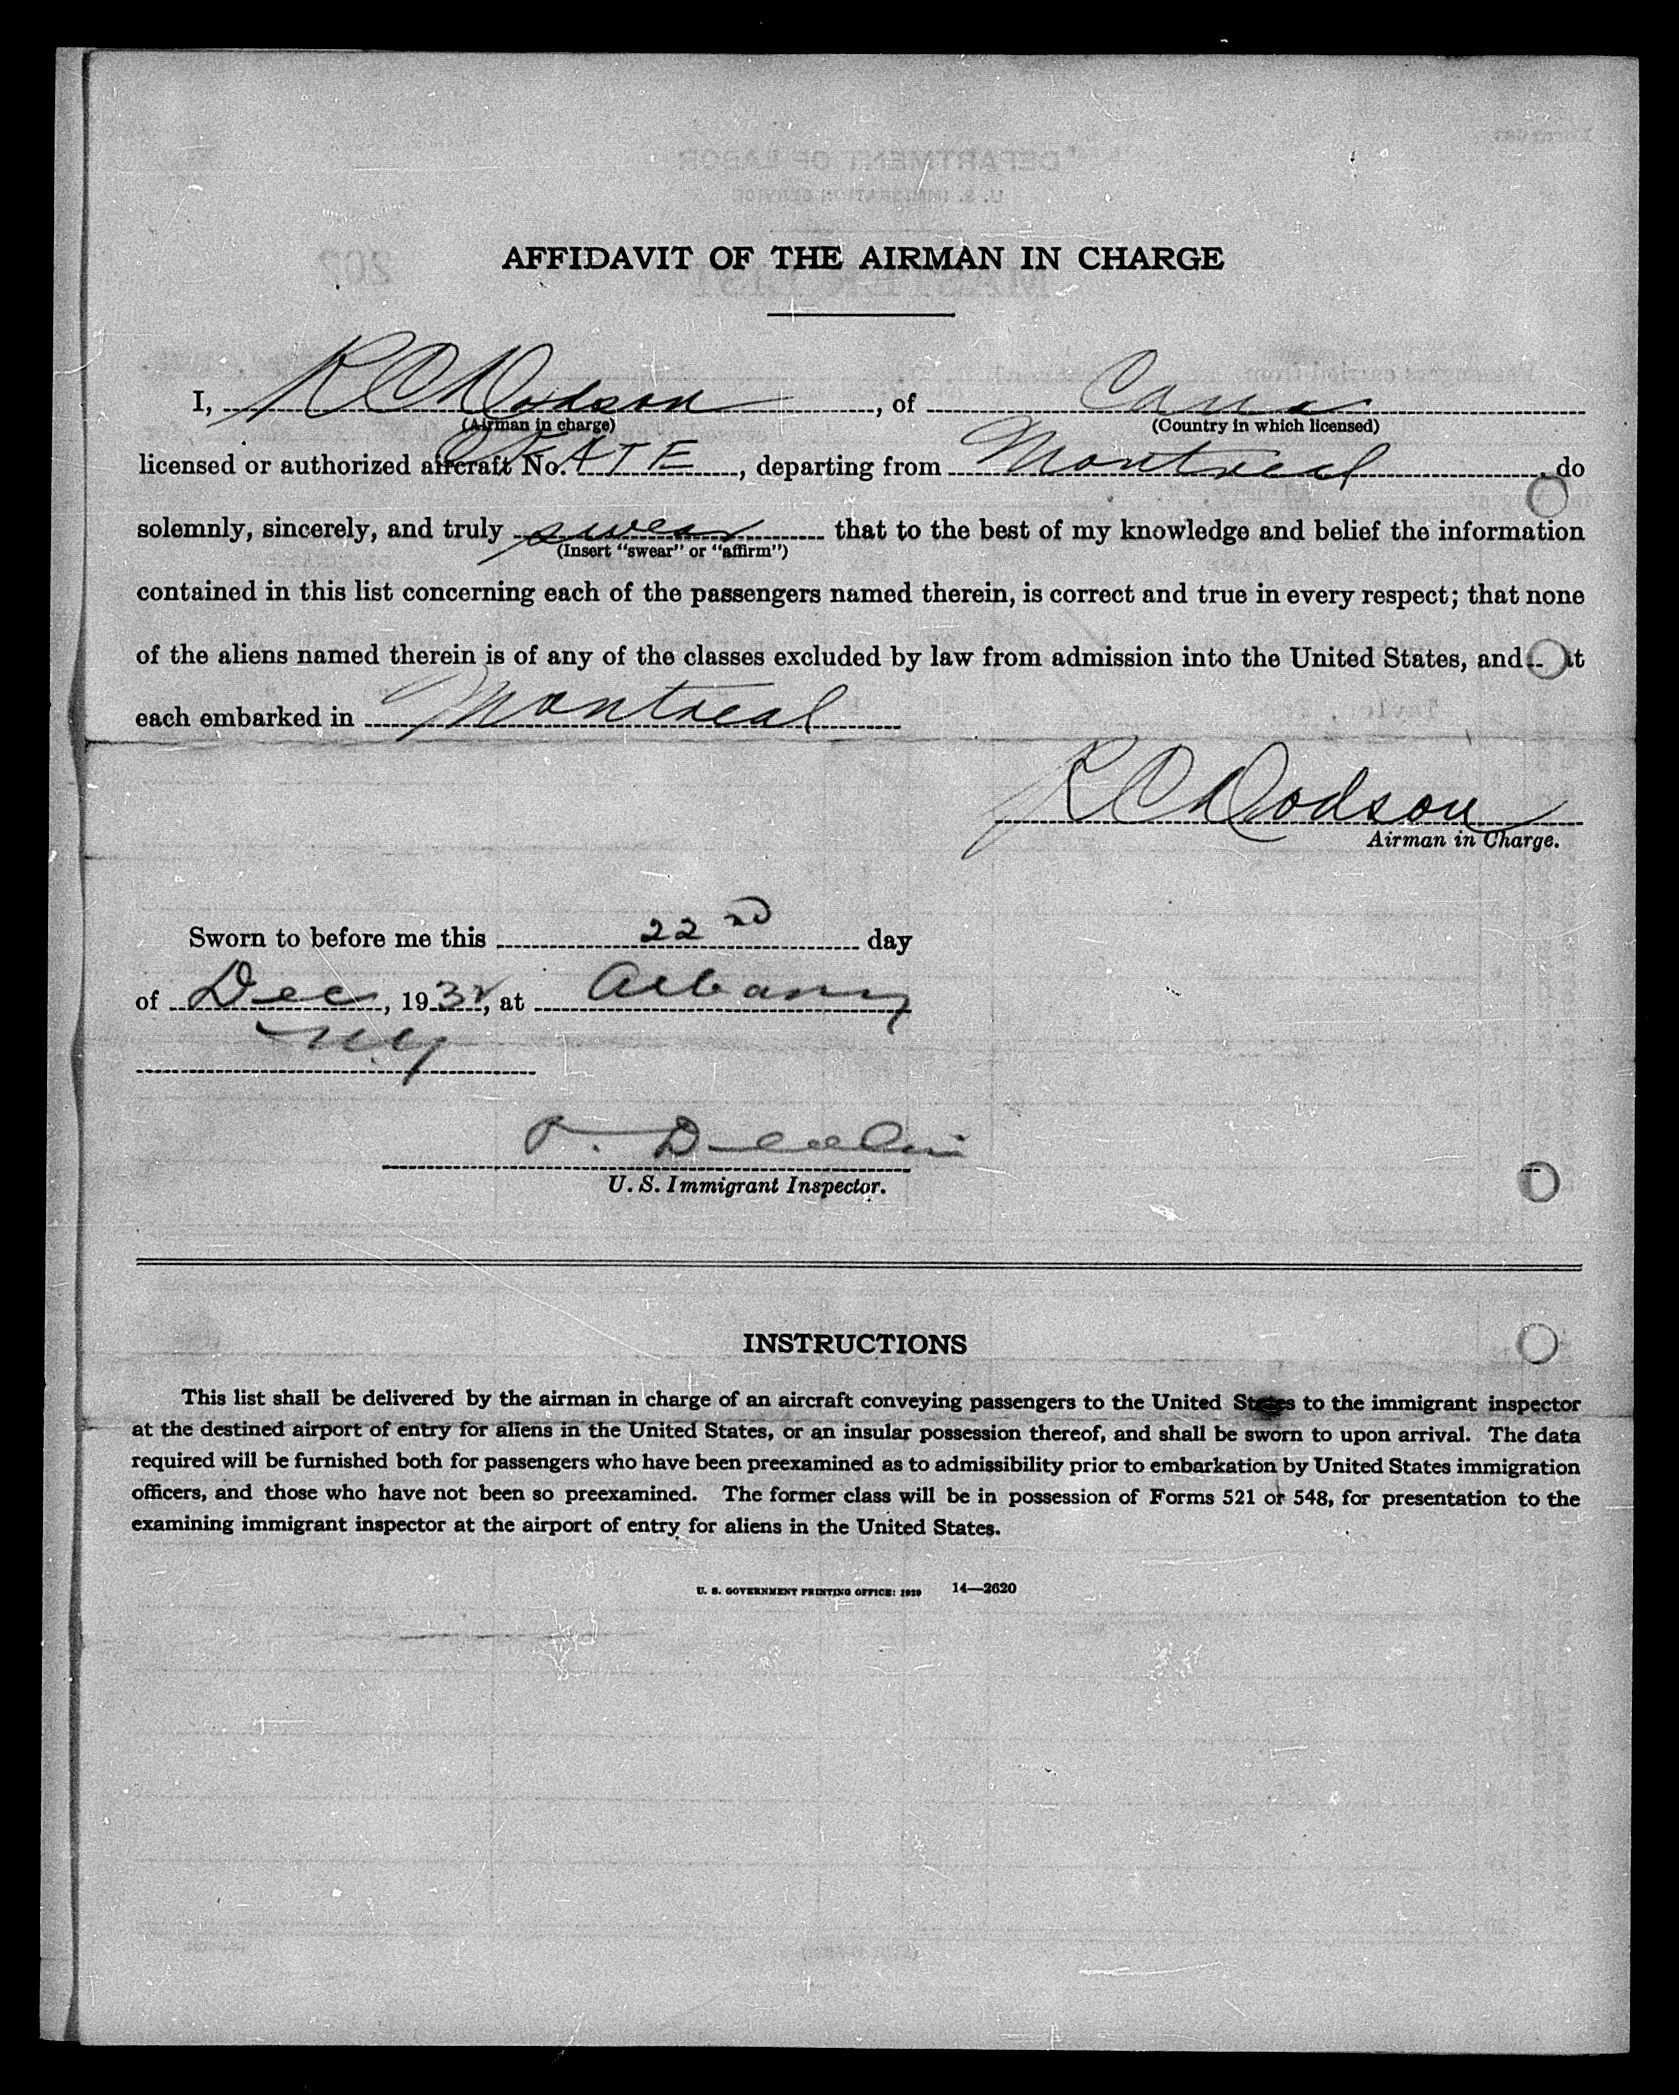 AFFIDAVIT OF THE AIRMAN IN CHARGE
I, R C Dodson, of Cana
(Airman in charge) (Country in which licensed)
licensed or authorized aircraft No. , departing from Montreal, do
solemnly, sincerely, and truly swear that to the best of my knowledge and belief the information
(Insert "swear" or "affirm")
contained in this list concerning each of the passengers named therein, is correct and true in every respect; that none
of the aliens named therein is of any of the classes excluded by law from admission into the United States, and
each embarked in Montreal
R C Dodson
Airman in Charge.
Sworn to before me this 22nd day
of Dec, 1932, at Albany
N.Y
U. S. Immigrant Inspector.
INSTRUCTIONS
This list shall be delivered by the airman in charge of an aircraft conveying passengers to the United States to the immigrant inspector
at the destined airport of entry for aliens in the United States, or an insular possession thereof, and shall be sworn to upon arrival. The data
required will be furnished both for passengers who have been preexamined as to admissibility prior to embarkation by United States immigration
officers, and those who have not been so preexamined. The former class will be in possession of Forms 521 or 548, for presentation to the
examining immigrant inspector at the airport of entry for aliens in the United States.
U. S. GOVERNMENT PRINTING OFFICE: 1929 14—2620